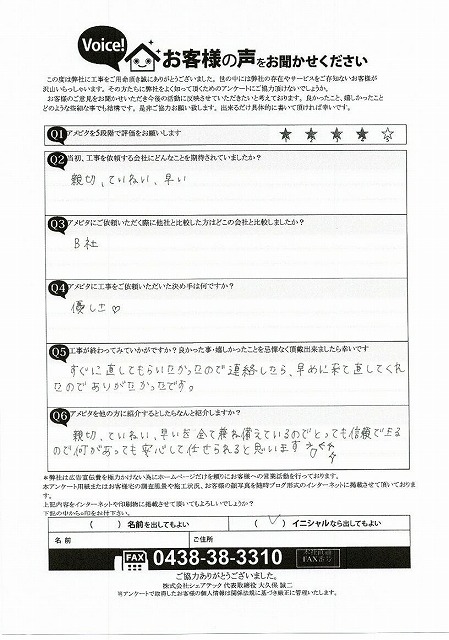 Voice!
お客様の声をお聞かせください
この度は弊社に工事をご用命頂き誠にありがとうございました。世の中には弊社の存在やサービスをご存知ないお客様が
沢山いらっしゃいます。その方たちに弊社をよく知って頂くためのアンケートにご協力頂けないでしょうか。
お客様のご意見をお聞かせいただき今後の活動に反映させていただきたいと考えております。良かったこと、嬉しかったこと
どのような些細な事でも結構です。是非ご協力お願い致します。出来るだけ具体的に書いて頂ければ幸いです。
Q1 アメピタを5段階で評価をお願いします ★ ★ ★ ★ ☆
Q2 当初、工事を依頼する会社にどんなことを期待されていましたか？
親切、ていねい、早い
Q3 アメピタにご依頼いただく際に他社と比較した方はどこの会社と比較しましたか？
B社
Q4 アメピタに工事をご依頼いただいた決め手は何ですか？
優しさ♡
Q5 工事が終わってみていかがですか？良かった事・嬉しかったことを忌憚なく頂戴出来ましたら幸いです
すぐに直してもらいたかったので連絡したら、早めに来て直してくれ
たのでありがたかったです。
Q6 アメピタを他の方に紹介するとしたらなんと紹介しますか？
親切、ていねい、早いを全て兼ね備えているのでとっても信頼できる
ので何があっても安心して任せられると思います
＊弊社は広告宣伝費を極力かけない為にホームページだけを頼りにお客様への営業活動を行っております。
本アンケート用紙またはお客様宅の調査風景や施工状況、お客様の顔写真を随時ブログ形式のインターネットに掲載させて頂いておりま
す。
上記内容をインターネットや印刷物に掲載させて頂いてもよろしいでしょうか？
下記の中から○印をお付下さい。
（ ）名前を出してもよい （✓）イニシャルなら出してもよい
名前 ご住所
FAX 0438-38-3310
ご協力ありがとうございました。
株式会社シェアテック 代表取締役 大久保 誠二
※アンケートで取得したお客様の個人情報は関係法規に基づき厳正に管理いたします。